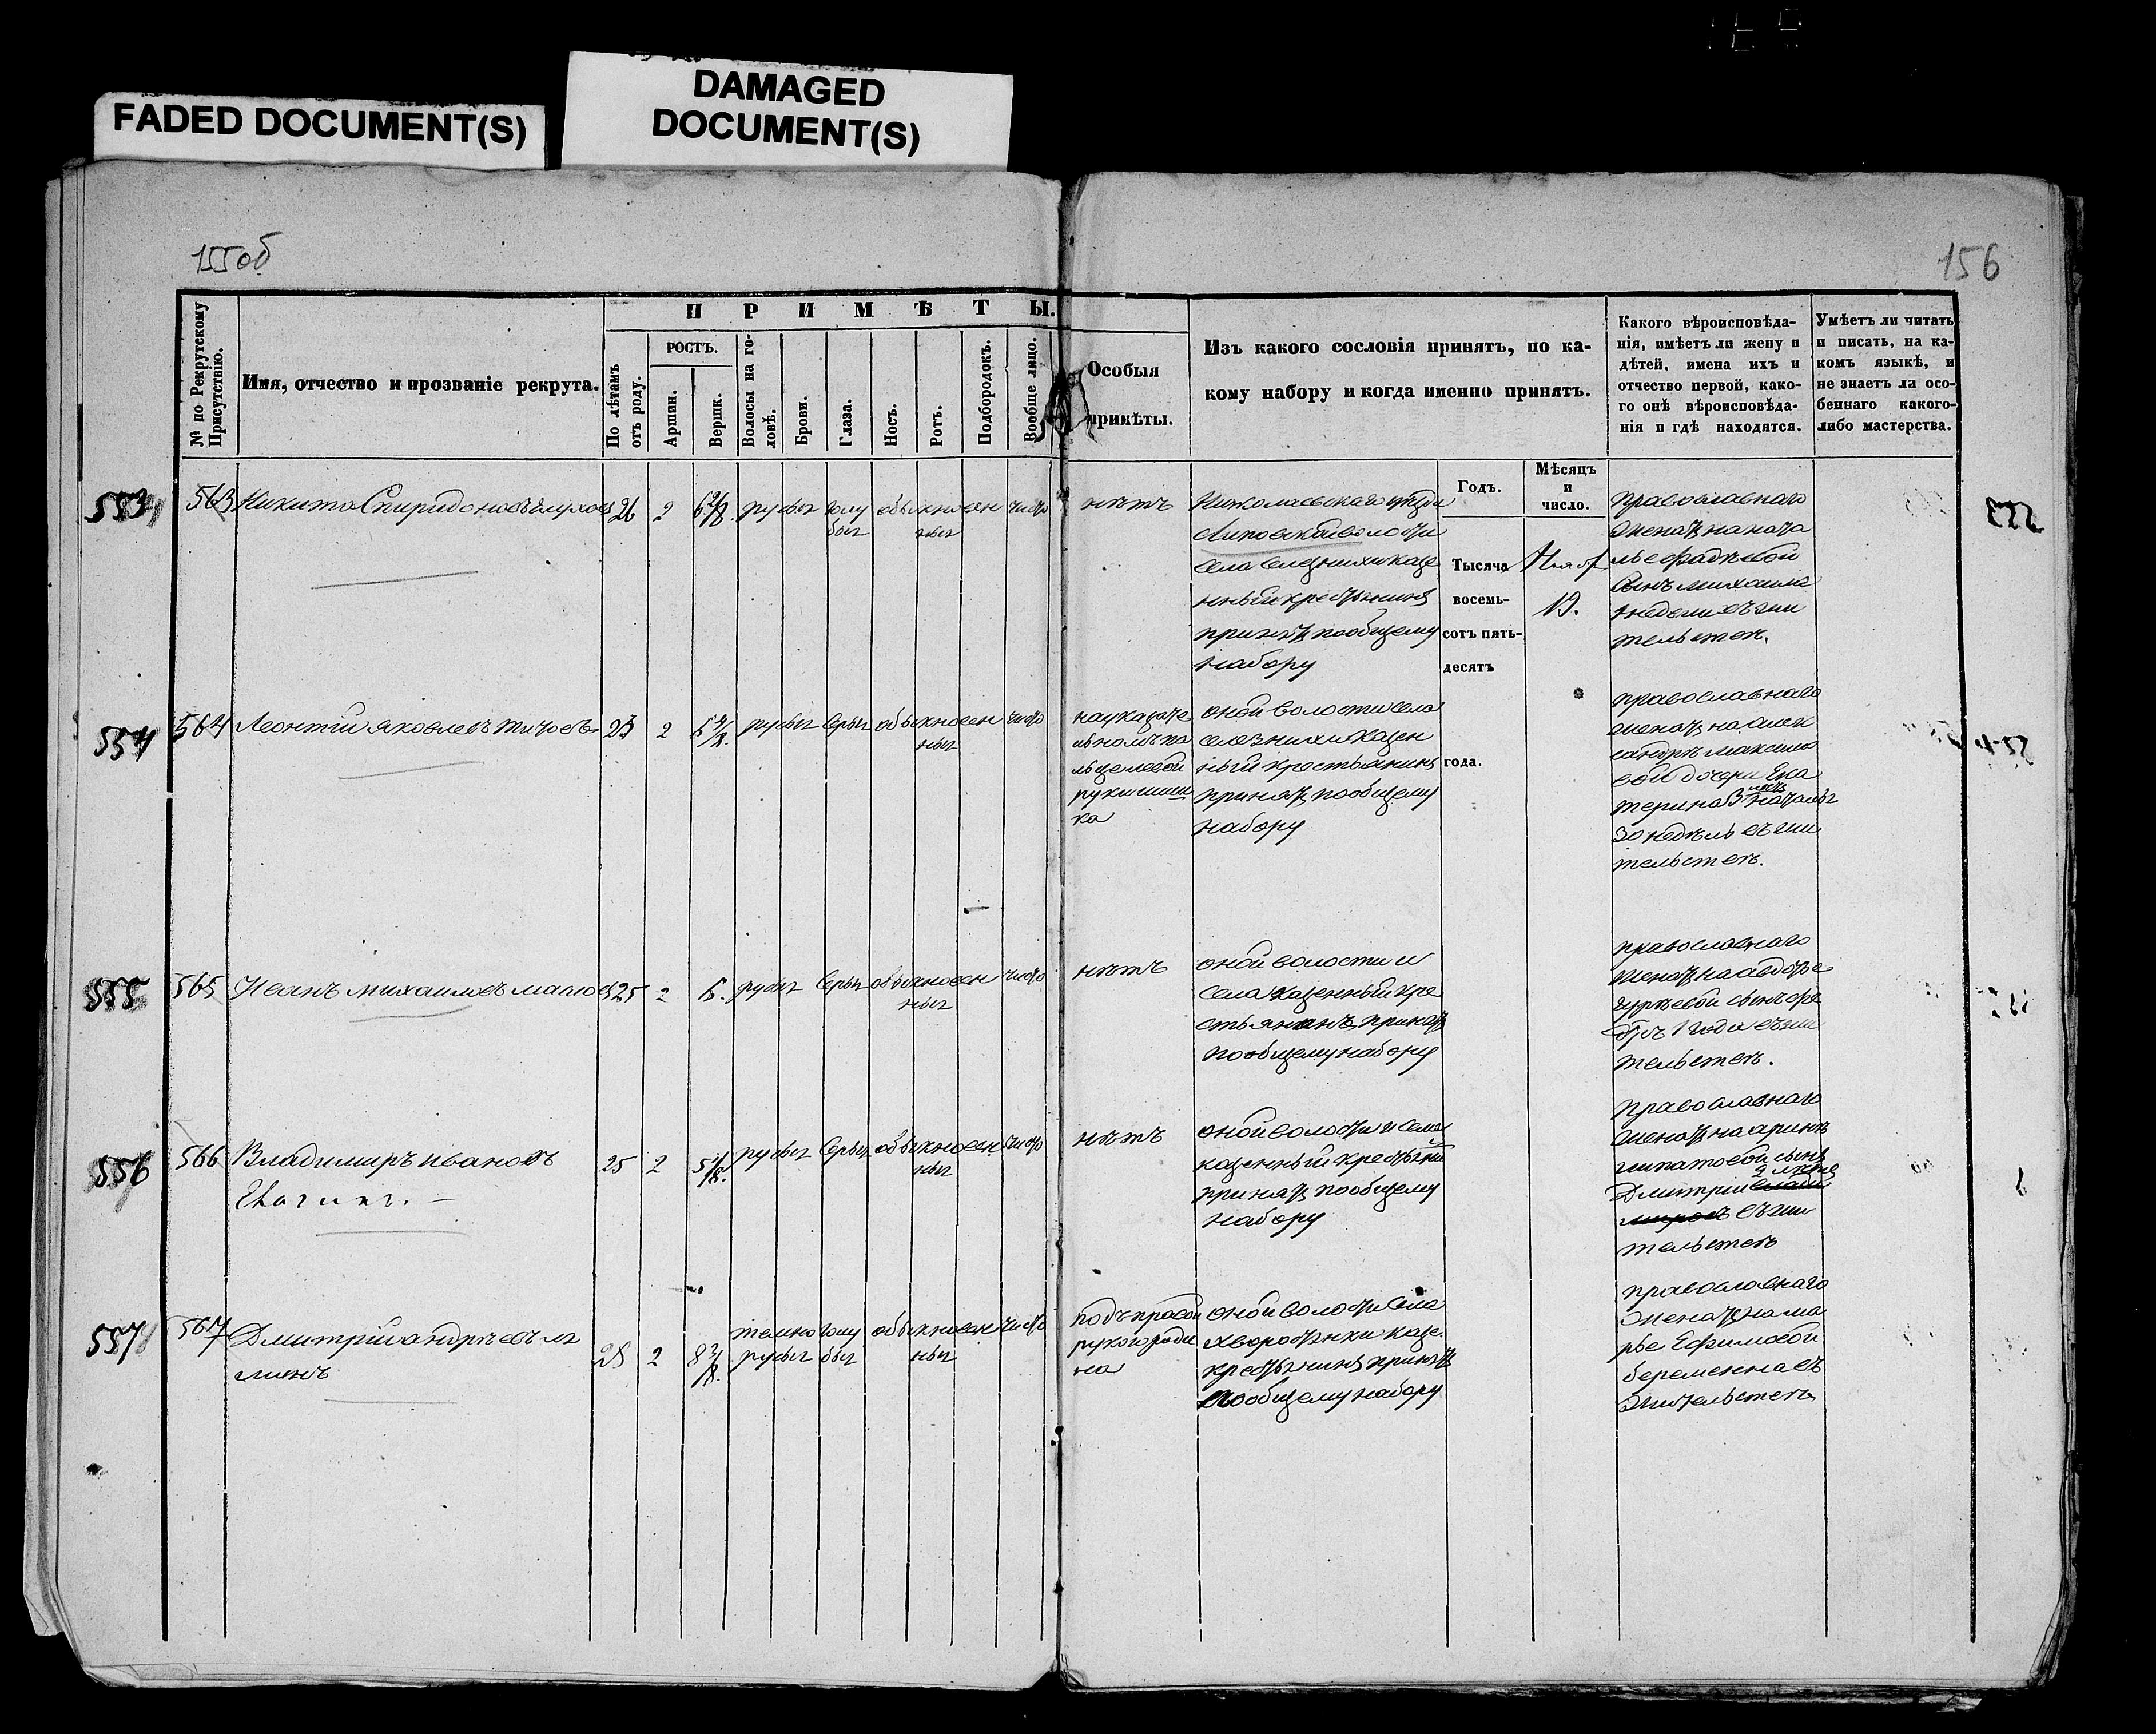 FADED DOCUMENT(S)
DAMAGED
DOCUMENT(S)
155об
156
№ по Рекрутскому
Присутствію.
Имя, отчество и прозваніе рекрута.
ПРИМѢТЫ.
По лѣтамъ
отъ роду.
РОСТЪ.
Аршин.
Вершк.
Волосы на го-
ловѣ.
Брови.
Глаза.
Носъ.
Ротъ.
Подбородокъ.
Вообще лицо.
Особыя
примѣты.
Изъ какого сословія принятъ, по ка-
кому набору и когда именно принятъ.
Какого вѣроисповѣда-
нія, имѣетъ ли жену и
дѣтей, имена ихъ и
отчество первой, како-
го онѣ вѣроисповѣда-
нія и гдѣ находятся.
Умѣетъ ли читать
и писать, на ка-
комъ языкѣ, и
не знаетъ ли осо-
беннаго какого-
либо мастерства.
Годъ.
Мѣсяцъ
и
число.
Тысяча
восемь-
сотъ пять-
десятъ
года.
553
563
Никита Спиридоновъ
26 2 6
русы голу обыкновен чисто
бы ны
нѣтъ
Николаевскаго уѣзда
волости
села Селезнихи казе
нный крестьянинъ
принятъ пообщему
набору
19.
православнаго
женатъ на ната
лье Фадѣевой
сынъ михаила
недели въ жи
тельствѣ.
554
564 Леонтій яковлевъ титовъ
23 2 5
русы серы обыкновен чисто
ны
на указате
льномъ па
льце левой
руки шиш
ка
оной волости села
селезнихи казен
ный крестьянинъ
принятъ пообщему
набору
православнаго
женатъ на алек
сандрѣ максимо
вой дочери Ека
терина 3 лѣтъ
30 недѣль въ жи
тельствѣ.
555
565 Иванъ михаиловъ
25 2 6.
русы серы обыкновен чисто
ны
нѣтъ
оной волости и
села казенный кре
стьянинъ принятъ
пообщему набору
православнаго
женатъ на авдотье
гурьевой сынъ
1 года въ жи
тельствѣ.
556
566 Владимиръ ивановъ
25 2 5
русы серы обыкновен чисто
ны
нѣтъ
оной волости и села
казенный крестьяни
принятъ пообщему
набору
православнаго
женатъ на аринѣ
ипатовой сынъ
Дмитрій влади
мировъ въ жи
тельствѣ
557
567 Дмитрій андреевъ
28 2 8
темно голу обыкновен чисто
русы бы ны
подъ правой
рукою роди
на
оной волости села
хворостянки казе.
крестьянинъ принятъ
пообщему набору
православнаго
женатъ на ма
рье Ефимовой
беременна въ
жительствѣ